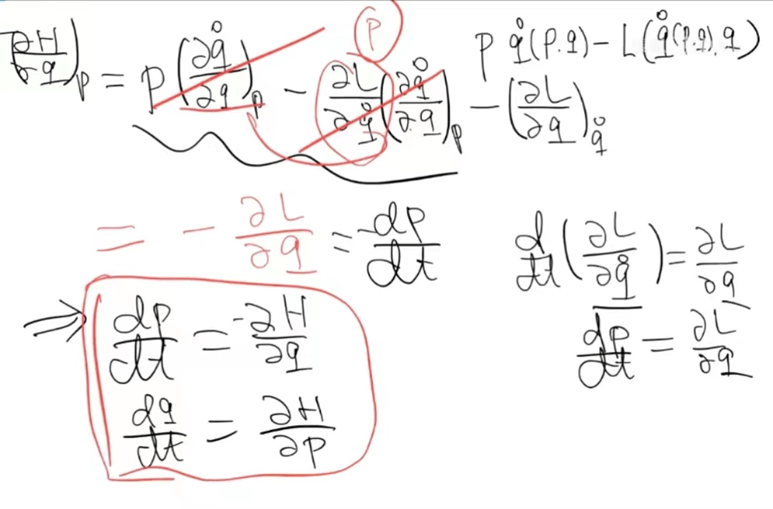 p q̇(p.q) − L(q̇(p.q).q)
∂H/∂q)p = p(∂q̇/∂q)p − ∂L/∂q̇ (∂q̇/∂q)p − (∂L/∂q)q̇
p
= − ∂L/∂q = −dp/dt
d/dt(∂L/∂q̇) = ∂L/∂q
dp/dt = ∂L/∂q
⇒ dp/dt = −∂H/∂q
dq/dt = ∂H/∂p